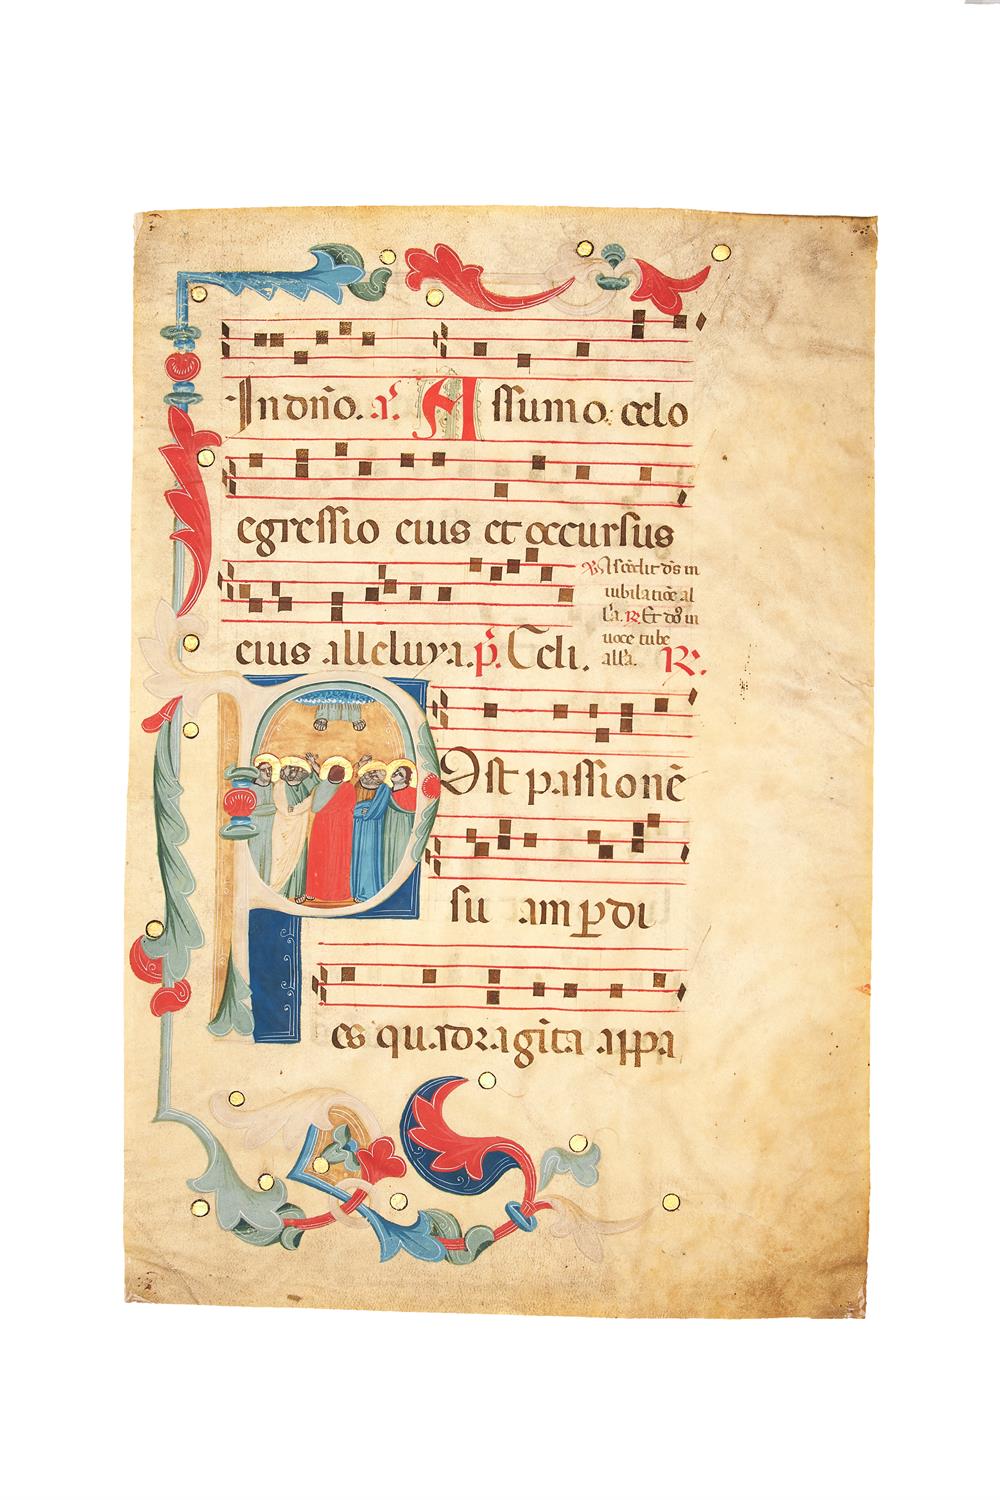 In dño. a. Assumo. celo
egressio eius et occursus
eius alleluya. p̄. Celi.
℣ Ascēdit ds̄ in
iubilatiōe al
l'a. ℟. Et dō3 in
uoce tube
all'a. ℟.
Post passionē
su am ꝑ di
es quadragīta appa